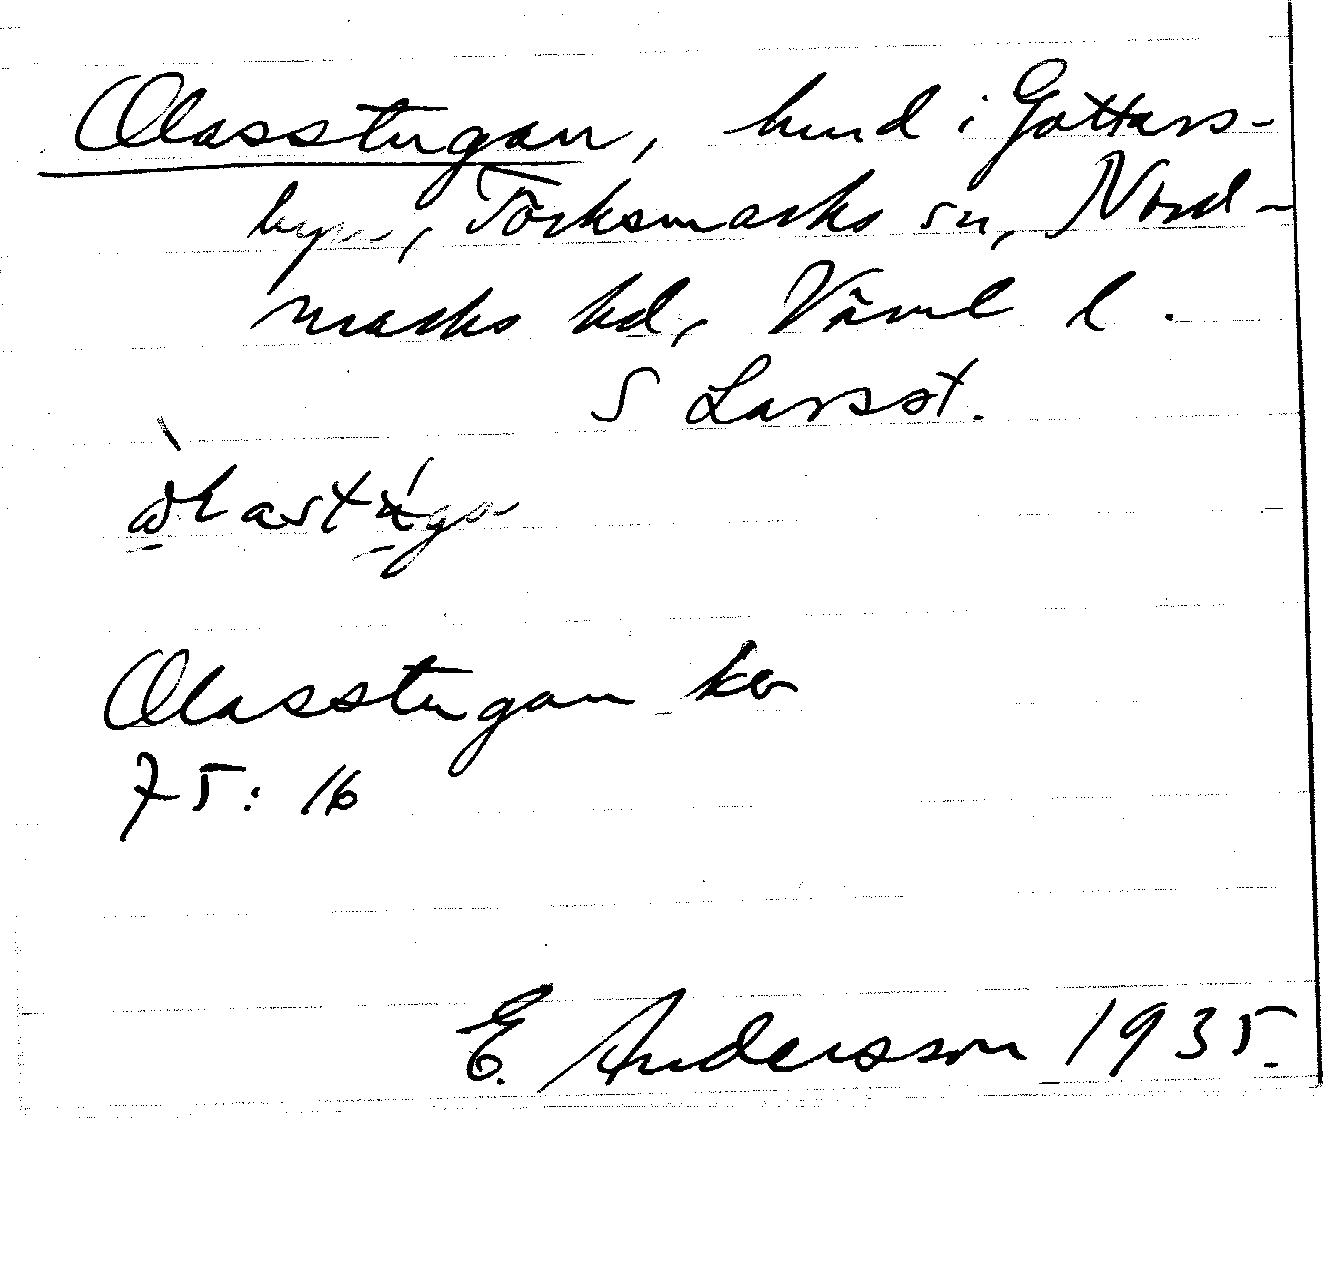 Olasstugan, hmd i Gottars-
byn, Töcksmarks sn, Nord-
marks hd, Värml l.
S Larsst.
Olasstugan ka
75: 16
E. Andersson 1935.